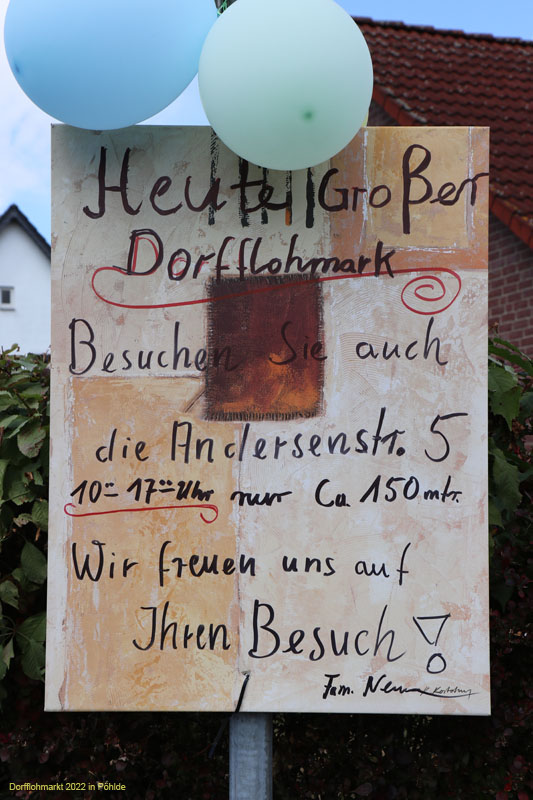 Heute Großer
Dorfflohmark
Besuchen Sie auch
die Andersenstr. 5
10⁰⁰- 17⁰⁰ Uhr nur Ca. 150 mtr.
Wir freuen uns auf
Ihren Besuch!
Fam.
Dorfflohmarkt 2022 in Pöhlde